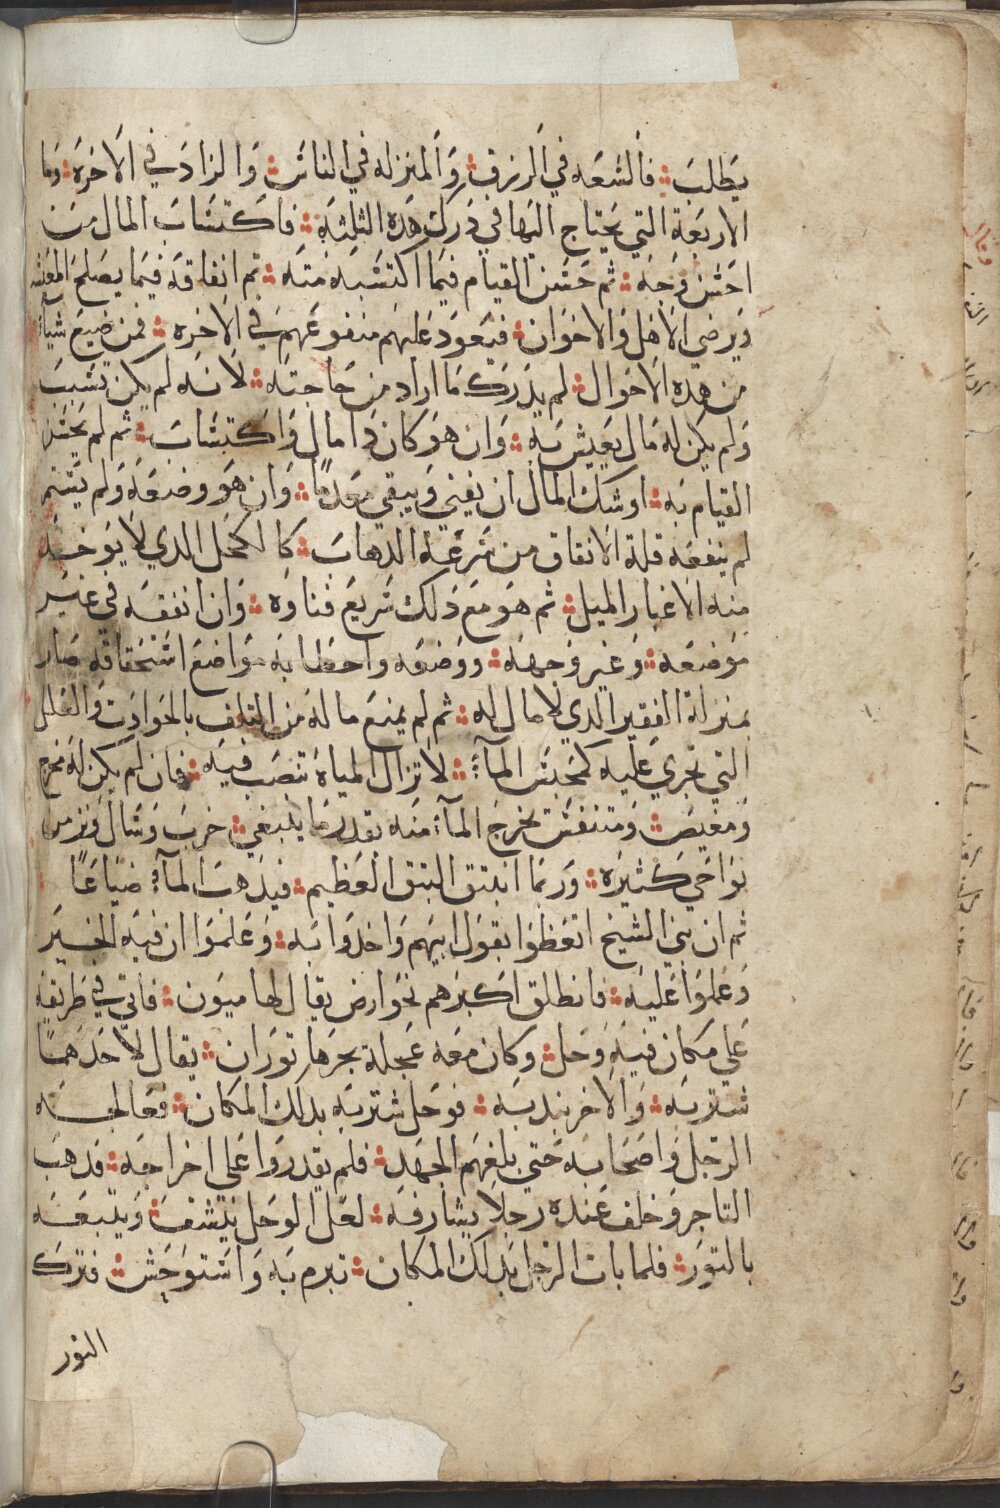 يطلب فالسعه في الرزق والمنزله في الناس والزاد في الاخره وما
الاربعة التي يحتاج اليها في درك هذه الثلثة فاكتساب المال من
احسن وجه ثم حسن القيام فيما اكتسبه منه ثم انفاقه فيما يصلح المعيشه
ويرضي الاهل والاخوان فيعود عليهم منفوعهم في الاخره فمن ضيع شياً
من هذه الاحوال لم يدرك ما اراد من حاجته لانه لم يكن تسبب
ولم يكن له مال يعيش به وان هو كان ذا مال واكتساب ثم لم يحسن
القيام به اوشك المال ان يفني ويبقي معدماً وان هو وضعه ولم يستثمر
لم ينفعه قلة الانفاق من سرعة الذهاب كالكحل الذي لا يوخذ
منه الا غبار الميل ثم هو مع ذلك سريع فناوه وان انفقه في غير
موضعه وغير وجهه ووضعه واخطا به مواضع استحقاقه صار
بمنزلة الفقير الذي لا مال له ثم لم يمنع ماله من التلف بالحوادث والعلل
التي تجري عليه كمحبس المآء لا تزال المياه تنصب فيه فان لم يكن له مخرج
ومغيض ومتنفس يخرج المآء منه بقدر ما ينبغي خرب وسال ونز من
نواحي كثيره وربما انبثق البثق العظيم فيذهب المآء ضياعاً
ثم ان بني الشيخ اتعظوا بقول ابيهم واخذوا به وعلموا ان فيه الخير
وعملوا عليه فانطلق اكبرهم نحو ارض يقال لها ميون فاتي في طريقه
علي مكان فيه وحل وكان معه عجلة يجرها ثوران يقال لاحدهما
شتربه والاخر بندبه فوحل شتربه بذلك المكان فعالجه
الرجل واصحابه حتي بلغهم الجهد فلم يقدروا علي اخراجه فذهب
التاجر وخلف عنده رجلا يشارفه لعل الوحل ينشف ويتبعه
بالثور فلما بات الرجل بذلك المكان تبرم به واستوحش فترك
الثور